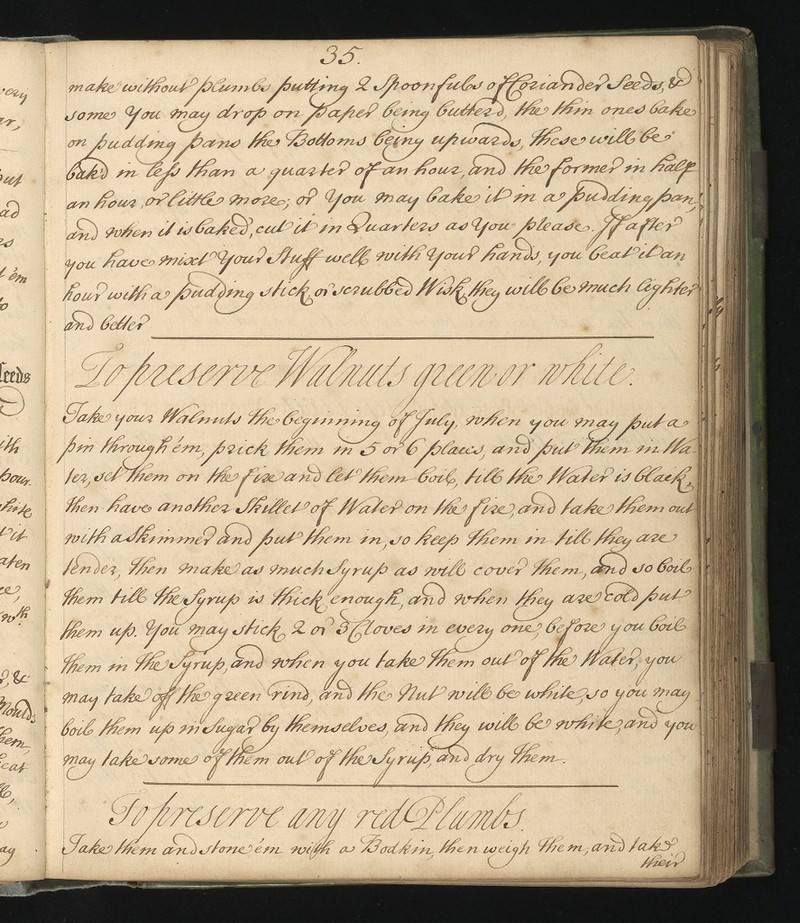 35.
make without plumbs putting 2 Spoonfuls of Coriander Seeds, &
some You may drop on paper being butter'd, the thin ones bake
on pudding pans the Bottoms being upwards, these will be
bak'd in less than a quarter of an hour, and the former in half
an hour, or little more; or You may bake it in a pudding pan,
and when it is baked, cut it in Quarters as You please. If after
you have mixt Your Stuff well with Your hands, you beat it an
hour with a pudding stick, or scrubbed Wisk, they will be much lighter
and better
To preserve Walnuts green or white.
Take your Walnuts the beginning of July, when you may put a
pin through 'em, prick them in 5 or 6 places, and put them in Wa
ter, set them on the fire and let them boil, till the Water is black,
then have another Skillet of Water on the fire, and take them out
with a Skimmer and put them in, so keep them in till they are
tender, then make as much Syrup as will cover them, and so boil
them till the Syrup is thick enough, and when they are cold put
them up. You may stick 2 or 3 Cloves in every one, before you boil
them in the Syrup, and when you take them out of the Water, you
may take off the green rind, and the Nut will be white, so you may
boil them up in Sugar by themselves, and they will be white, and you
may take some of them out of the Syrup, and dry them.
To preserve any red Plumbs.
Take them and stone 'em with a Bodkin, then weigh them, and take
their